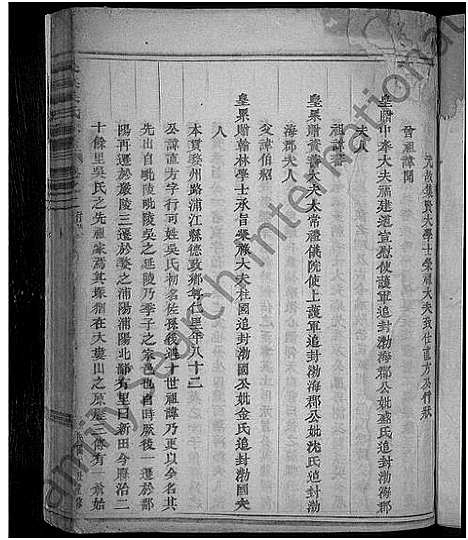 元故集賢大學士榮祿大夫致仕直方公行狀
曾祖諱聞
皇贈中奉大夫福建道宣慰使護軍追封渤海郡公妣盛氏追封渤海郡
夫人
祖諱
皇累贈資善大夫太常禮儀院使上護軍追封渤海郡公妣沈氏追封渤
海郡夫人
父諱伯紹
皇累贈翰林學士承旨榮祿大夫柱國追封渤國公妣金氏追封渤國夫
人
本貫婺州路浦江縣德政鄉 年八十二
公諱直方字行可姓吳氏初名佐孫後避十世祖諱乃更以今名其
先出自毗陵毗陵吳之延陵乃季子之宗邑也自時厥後一遷於鄱
陽再遷於嚴陵三遷於婺之浦陽浦陽北鄙有里曰新田今縣治二
十餘里吳氏之先祖家焉其塚猶在大婁山之原歷三傳有一府始
Family Search International